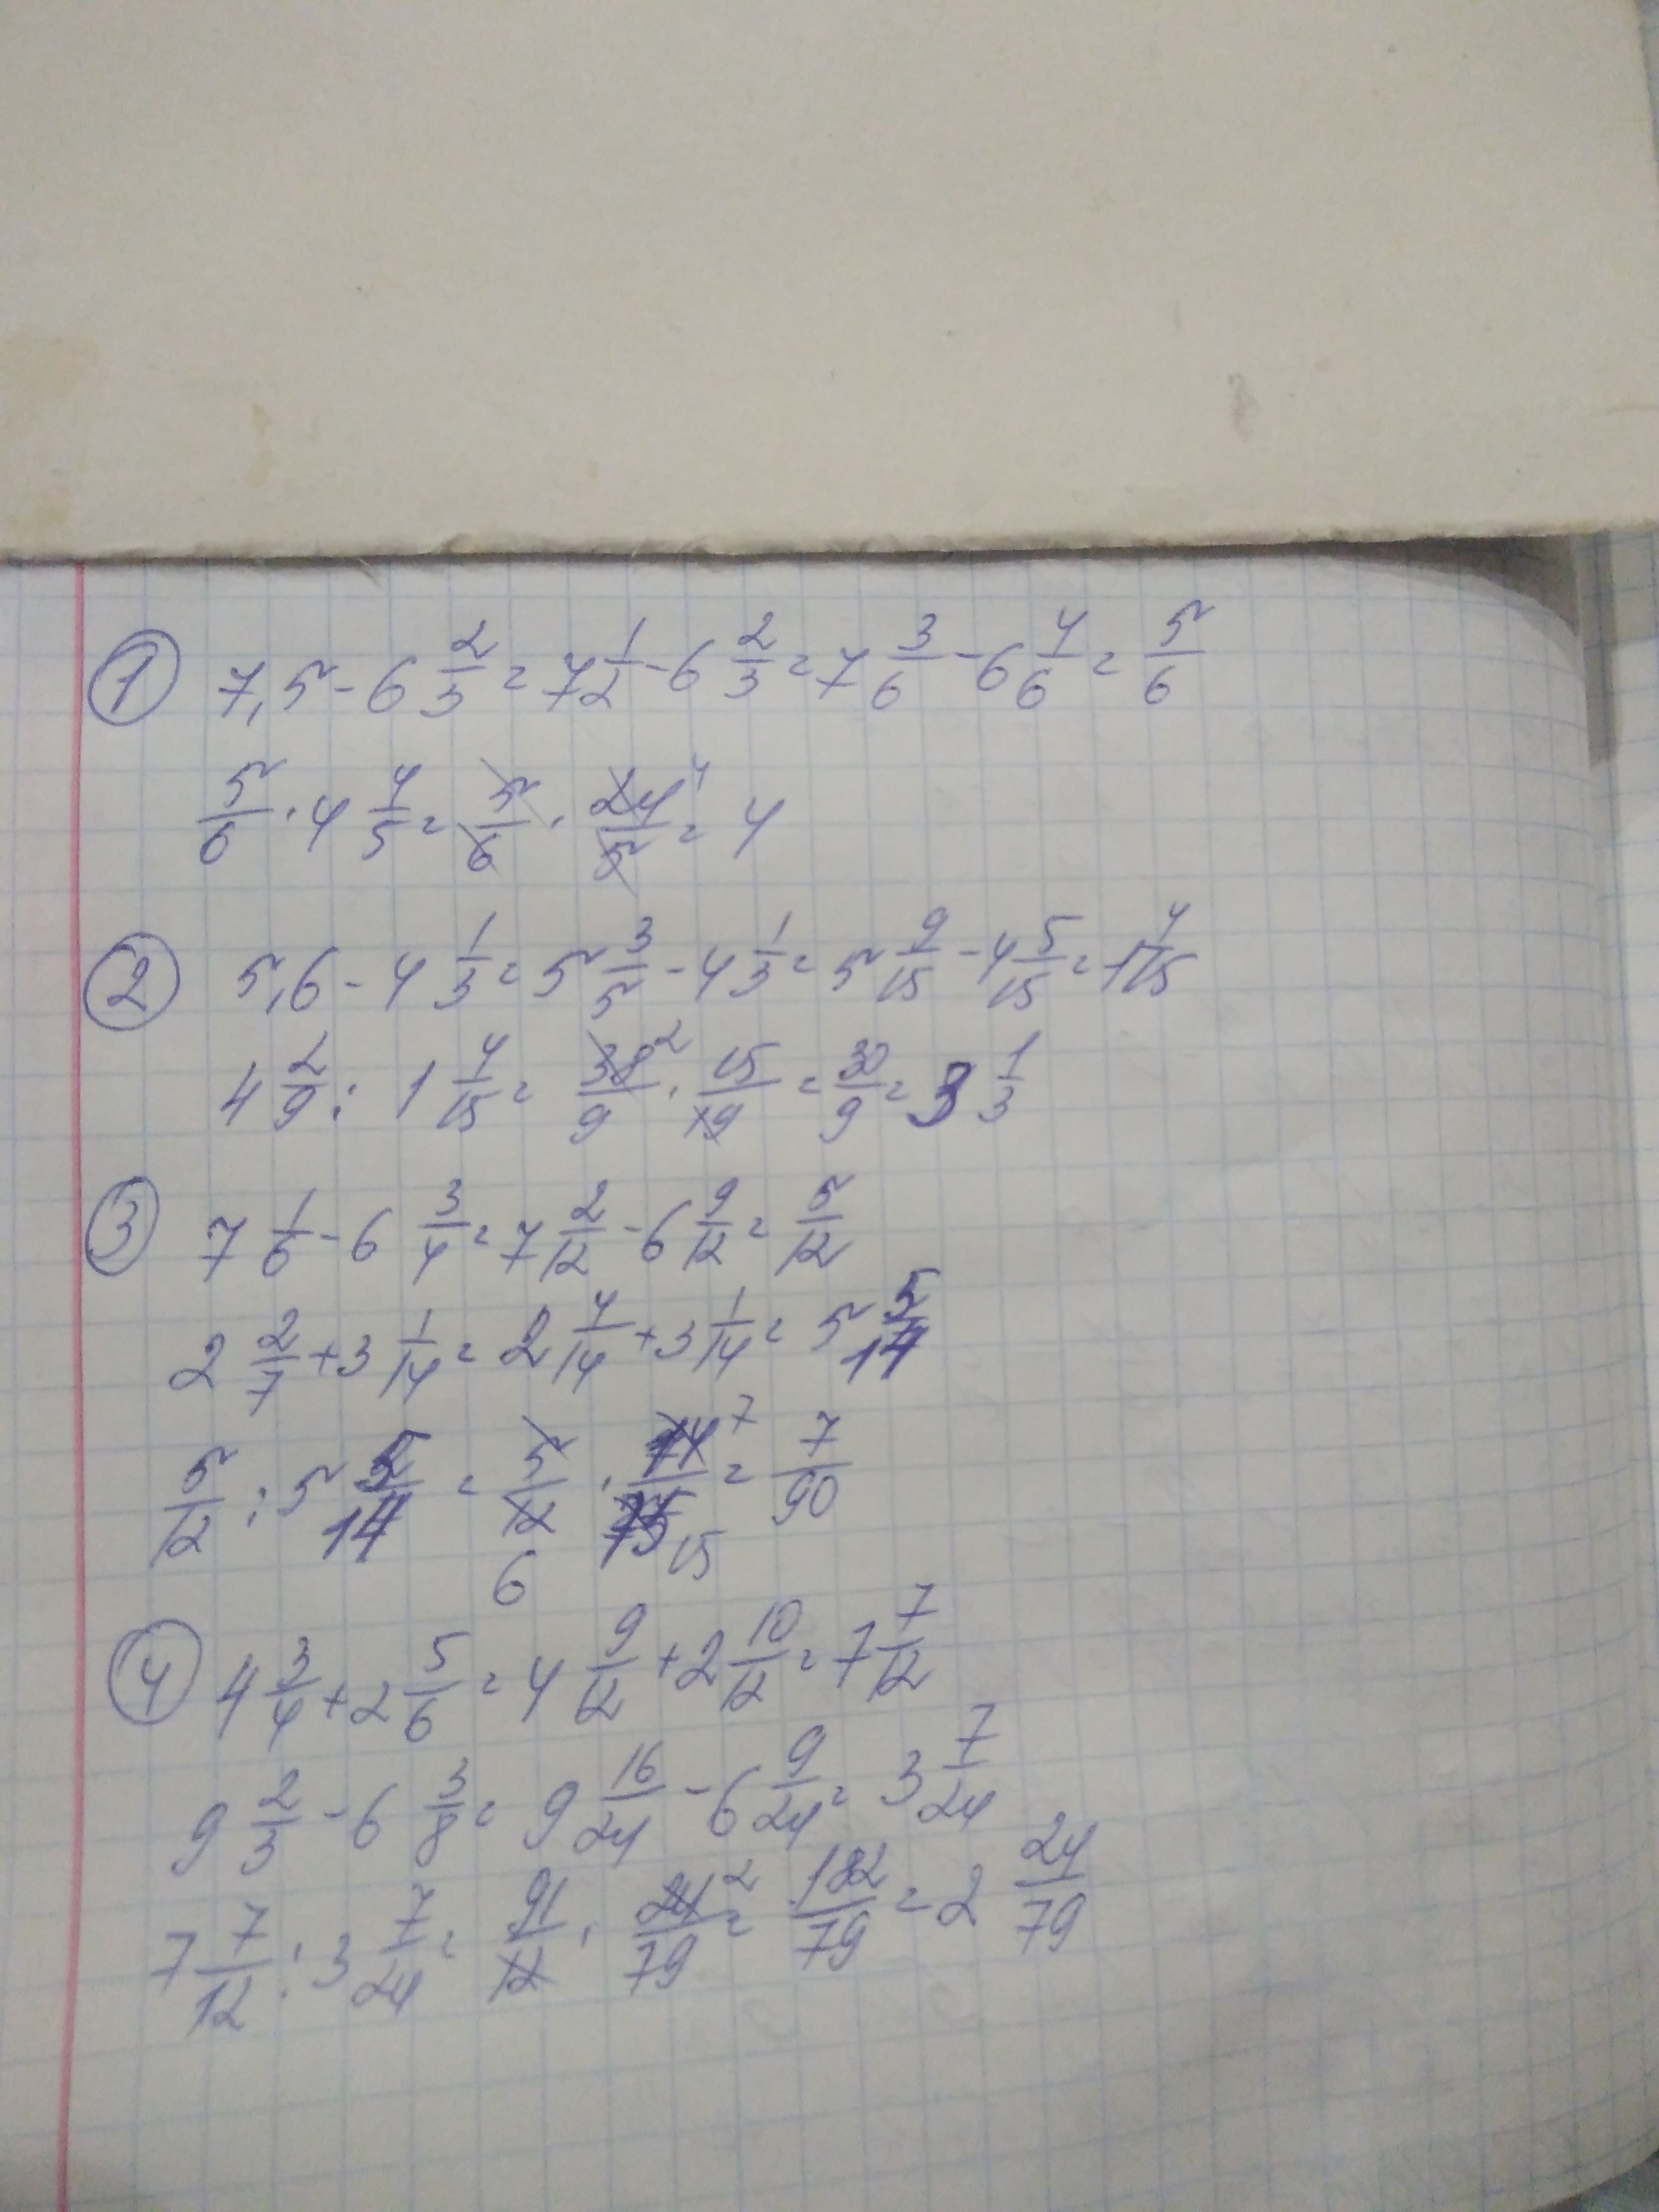 ① 7,5 - 6 2/3 = 7 1/2 - 6 2/3 = 7 3/6 - 6 4/6 = 5/6
5/6 · 4 4/5 = 5/6 · 24/5 4 = 4
② 5,6 - 4 1/3 = 5 3/5 - 4 1/3 = 5 9/15 - 4 5/15 = 1 4/15
4 2/9 : 1 4/15 = 38/9 2 · 15/19 = 30/9 = 3 1/3
③ 7 1/6 - 6 3/4 = 7 2/12 - 6 9/12 = 5/12
2 2/7 + 3 1/14 = 2 4/14 + 3 1/14 = 5 5/14
5/12 : 5 5/14 = 5/12 6 · 14/75 7 15 = 7/90
④ 4 3/4 + 2 5/6 = 4 9/12 + 2 10/12 = 7 7/12
9 2/3 - 6 3/8 = 9 16/24 - 6 9/24 = 3 7/24
7 7/12 : 3 7/24 = 91/12 · 24/79 2 = 182/79 = 2 24/79